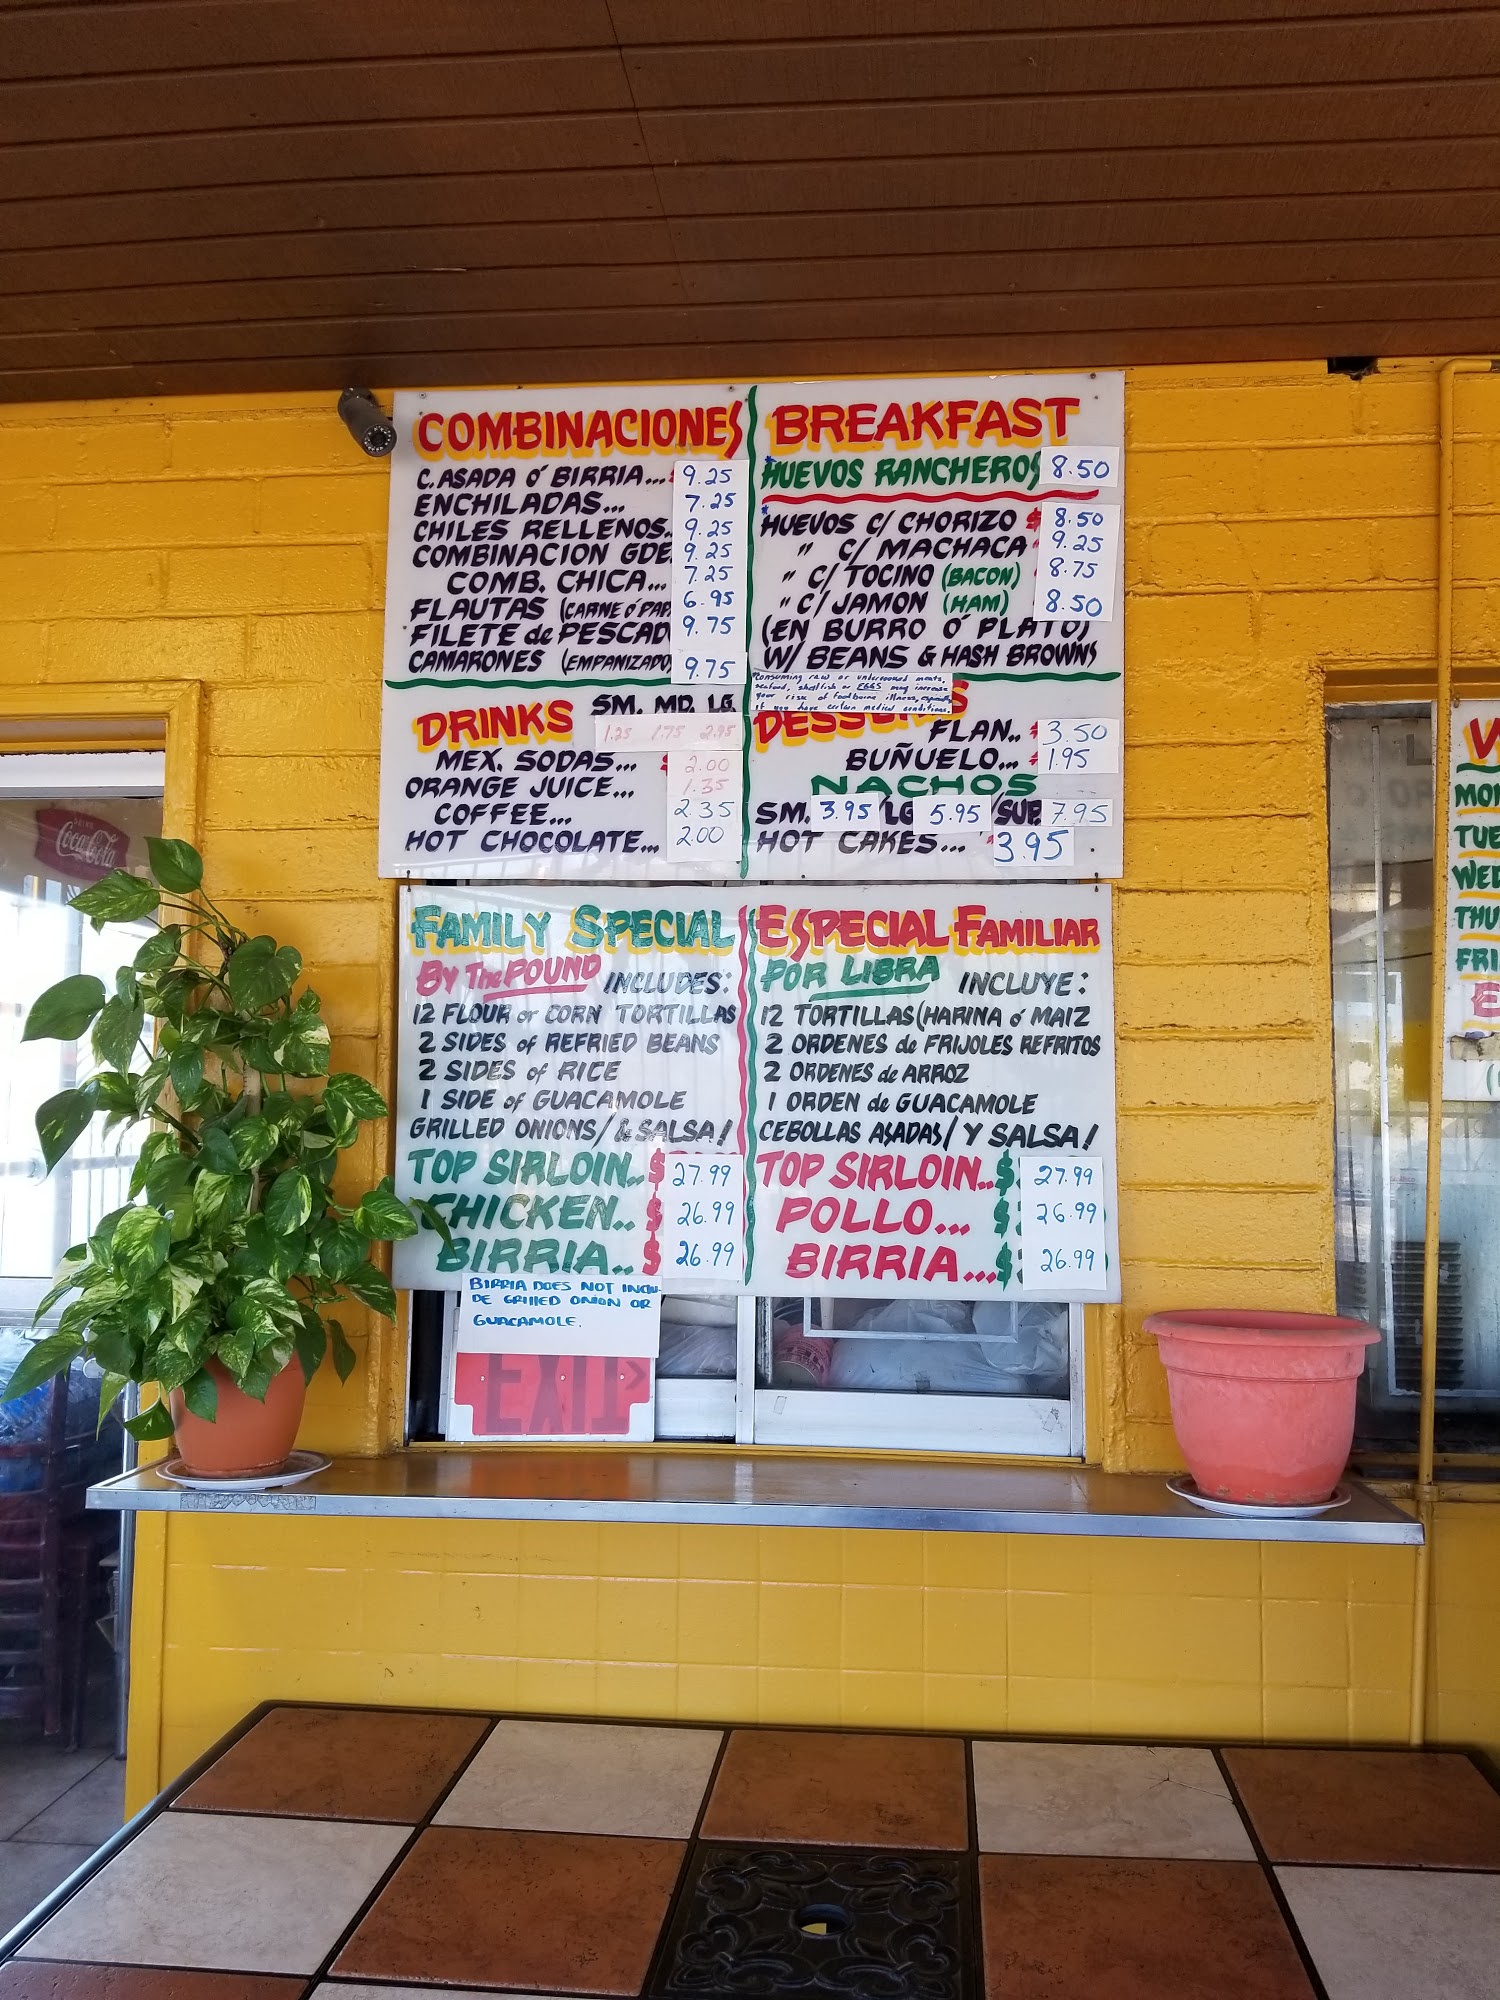 COMBINACIONES
C. ASADA ó BIRRIA... 9.25
ENCHILADAS... 7.25
CHILES RELLENOS.. 9.25
COMBINACION GDE 9.25
COMB. CHICA... 7.25
FLAUTAS (CARNE ó PAP 6.95
FILETE de PESCAD 9.75
CAMARONES (EMPANIZADO 9.75
DRINKS SM. MD. LG.
1.25 1.75 2.95
MEX. SODAS... 2.00
ORANGE JUICE... 1.35
COFFEE... 2.35
HOT CHOCOLATE... 2.00
BREAKFAST
*HUEVOS RANCHEROS 8.50
*HUEVOS C/ CHORIZO $ 8.50
" C/ MACHACA 9.25
" C/ TOCINO (BACON) 8.75
" C/ JAMON (HAM) 8.50
(EN BURRO ó PLATO)
W/ BEANS & HASH BROWNS
*Consuming raw or undercooked meats,
seafood, shellfish or EGGS may increase
your risk of foodborne illness, especially
if you have certain medical conditions.
DESSERTS
FLAN.. 3.50
BUÑUELO... 1.95
NACHOS
SM. 3.95 /LG 5.95 /SUP. 7.95
HOT CAKES... 3.95
FAMILY SPECIAL
BY The POUND INCLUDES:
12 FLOUR or CORN TORTILLAS
2 SIDES of REFRIED BEANS
2 SIDES of RICE
1 SIDE of GUACAMOLE
GRILLED ONIONS/ & SALSA!
TOP SIRLOIN.. $ 27.99
CHICKEN.. $ 26.99
BIRRIA.. $ 26.99
BIRRIA DOES NOT INCLU-
DE GRILLED ONION OR
GUACAMOLE.
EXIT
ESPECIAL FAMILIAR
POR LIBRA INCLUYE:
12 TORTILLAS (HARINA ó MAIZ
2 ORDENES de FRIJOLES REFRITOS
2 ORDENES de ARROZ
1 ORDEN de GUACAMOLE
CEBOLLAS ASADAS/ Y SALSA!
TOP SIRLOIN.. $ 27.99
POLLO... $ 26.99
BIRRIA... $ 26.99
Coca-Cola
W
MON
TUE
WED
THU
FRI
E